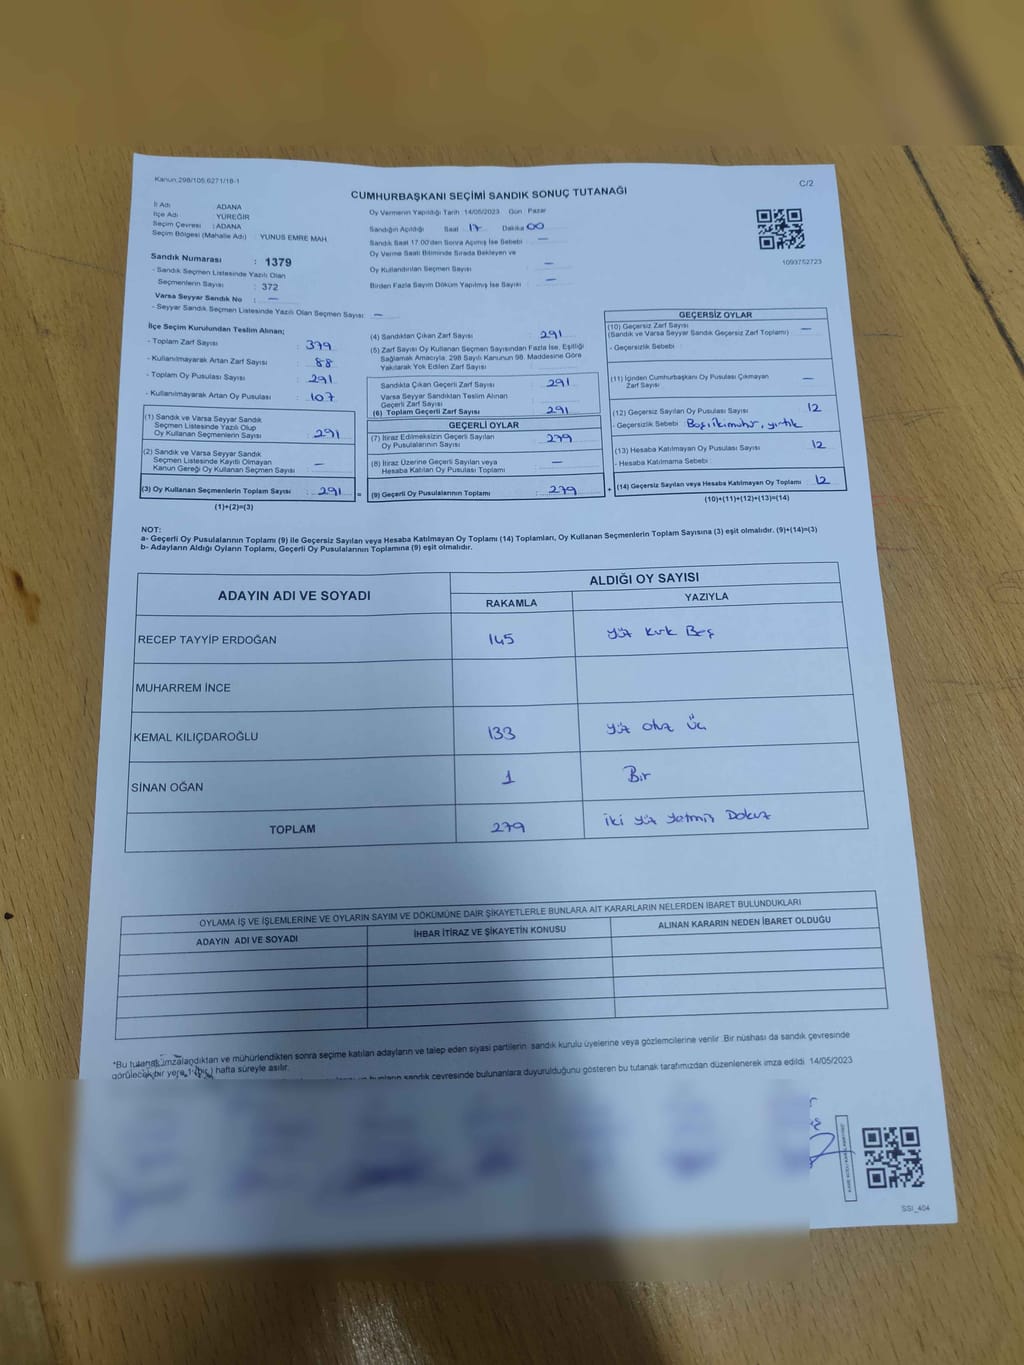 Kanun.298/105.6271/18-1
C/2
CUMHURBAŞKANI SEÇİMİ SANDIK SONUÇ TUTANAĞI
İl Adı : ADANA
İlçe Adı : YÜREĞİR
Seçim Çevresi : ADANA
Seçim Bölgesi (Mahalle Adı) : YUNUS EMRE MAH
Sandık Numarası : 1379
- Sandık Seçmen Listesinde Yazılı Olan
Seçmenlerin Sayısı : 372
Varsa Seyyar Sandık No : —
- Seyyar Sandık Seçmen Listesinde Yazılı Olan Seçmen Sayısı: —
Oy Vermenin Yapıldığı Tarih 14/05/2023 Gün Pazar
Sandığın Açıldığı Saat 17 Dakika 00
Sandık Saat 17.00'dan Sonra Açımış İse Sebebi : —
Oy Verme Saati Bitiminde Sırada Bekleyen ve
Oy Kullandırılan Seçmen Sayısı : —
Birden Fazla Sayım Döküm Yapılmış İse Sayısı : —
1093752723
İlçe Seçim Kurulundan Teslim Alınan;
- Toplam Zarf Sayısı : 379
- Kullanılmayarak Artan Zarf Sayısı : 88
- Toplam Oy Pusulası Sayısı : 291
- Kullanılmayarak Artan Oy Pusulası : 107
(1) Sandık ve Varsa Seyyar Sandık
Seçmen Listesinde Yazılı Olup
Oy Kullanan Seçmenlerin Sayısı : 291
(2) Sandık ve Varsa Seyyar Sandık
Seçmen Listesinde Kayıtlı Olmayan
Kanun Gereği Oy Kullanan Seçmen Sayısı : —
(3) Oy Kullanan Seçmenlerin Toplam Sayısı : 291 =
(1)+(2)=(3)
(4) Sandıktan Çıkan Zarf Sayısı : 291
(5) Zarf Sayısı Oy Kullanan Seçmen Sayısından Fazla İse, Eşitliği
Sağlamak Amacıyla; 298 Sayılı Kanunun 98. Maddesine Göre
Yakılarak Yok Edilen Zarf Sayısı :
Sandıkta Çıkan Geçerli Zarf Sayısı : 291
Varsa Seyyar Sandıktan Teslim Alınan
Geçerli Zarf Sayısı :
(6) Toplam Geçerli Zarf Sayısı : 291
GEÇERLİ OYLAR
(7) İtiraz Edilmeksizin Geçerli Sayılan
Oy Pusulalarının Sayısı : 279
(8) İtiraz Üzerine Geçerli Sayılan veya
Hesaba Katılan Oy Pusulası Toplamı : —
(9) Geçerli Oy Pusulalarının Toplamı : 279 +
GEÇERSİZ OYLAR
(10) Geçersiz Zarf Sayısı
(Sandık ve Varsa Seyyar Sandık Geçersiz Zarf Toplamı) : —
- Geçersizlik Sebebi :
(11) İçinden Cumhurbaşkanı Oy Pusulası Çıkmayan
Zarf Sayısı : —
(12) Geçersiz Sayılan Oy Pusulası Sayısı : 12
- Geçersizlik Sebebi : Boş, iki mühür, yırtık
(13) Hesaba Katılmayan Oy Pusulası Sayısı : 12
- Hesaba Katılmama Sebebi :
(14) Geçersiz Sayılan veya Hesaba Katılmayan Oy Toplamı : 12
(10)+(11)+(12)+(13)=(14)
NOT:
a- Geçerli Oy Pusulalarının Toplamı (9) ile Geçersiz Sayılan veya Hesaba Katılmayan Oy Toplamı (14) Toplamları, Oy Kullanan Seçmenlerin Toplam Sayısına (3) eşit olmalıdır. (9)+(14)=(3)
b- Adayların Aldığı Oyların Toplamı, Geçerli Oy Pusulalarının Toplamına (9) eşit olmalıdır.
ADAYIN ADI VE SOYADI
ALDIĞI OY SAYISI
RAKAMLA YAZIYLA
RECEP TAYYİP ERDOĞAN 145 yüz kırk Beş
MUHARREM İNCE
KEMAL KILIÇDAROĞLU 133 yüz otuz Üç
SİNAN OĞAN 1 Bir
TOPLAM 279 iki yüz yetmiş Dokuz
OYLAMA İŞ VE İŞLEMLERİNE VE OYLARIN SAYIM VE DÖKÜMÜNE DAİR ŞİKAYETLERLE BUNLARA AİT KARARLARIN NELERDEN İBARET BULUNDUKLARI
ADAYIN ADI VE SOYADI İHBAR İTİRAZ VE ŞİKAYETİN KONUSU ALINAN KARARIN NEDEN İBARET OLDUĞU
*Bu tutanak imzalandıktan ve mühürlendikten sonra seçime katılan adayların ve talep eden siyasi partilerin, sandık kurulu üyelerine veya gözlemcilerine verilir. Bir nüshası da sandık çevresinde
görülecek bir yere 1 (bir) hafta süreyle asılır.
sandık çevresinde bulunanlara duyurulduğunu gösteren bu tutanak tarafımızdan düzenlenerek imza edildi. 14/05/2023
SSI_404